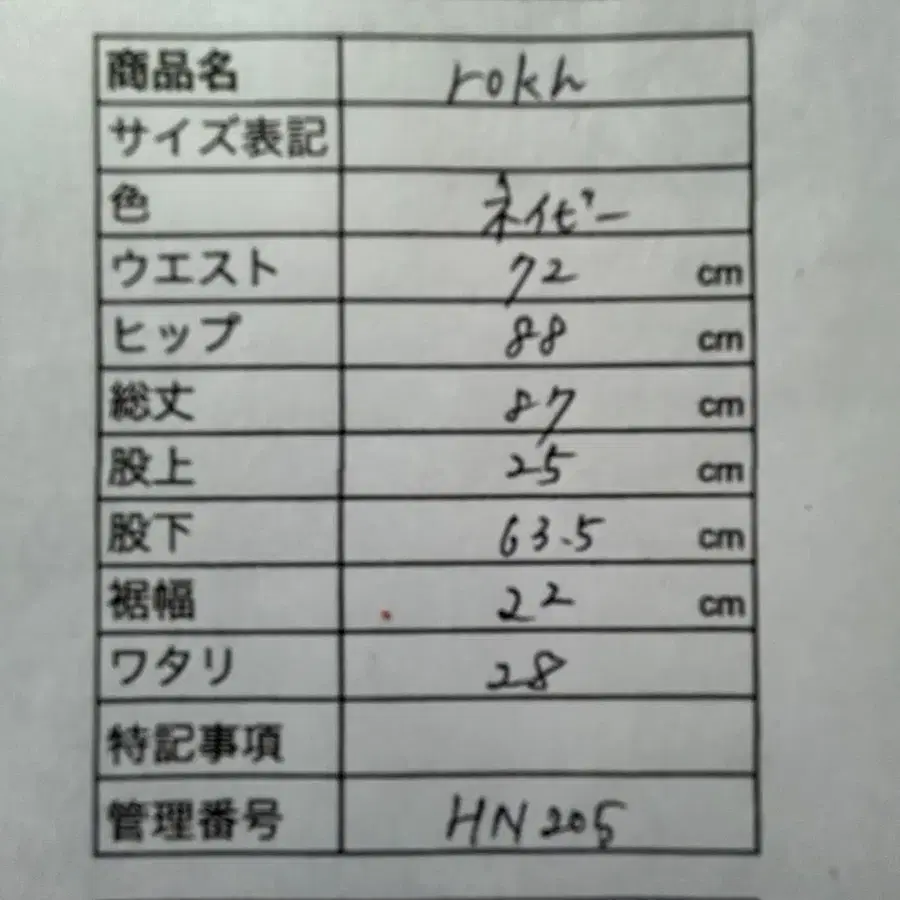 商品名 rokh
サイズ表記
色 ネイビー
ウエスト 72 cm
ヒップ 88 cm
総丈 87 cm
股上 25 cm
股下 63.5 cm
裾幅 22 cm
ワタリ 28
特記事項
管理番号 HN205